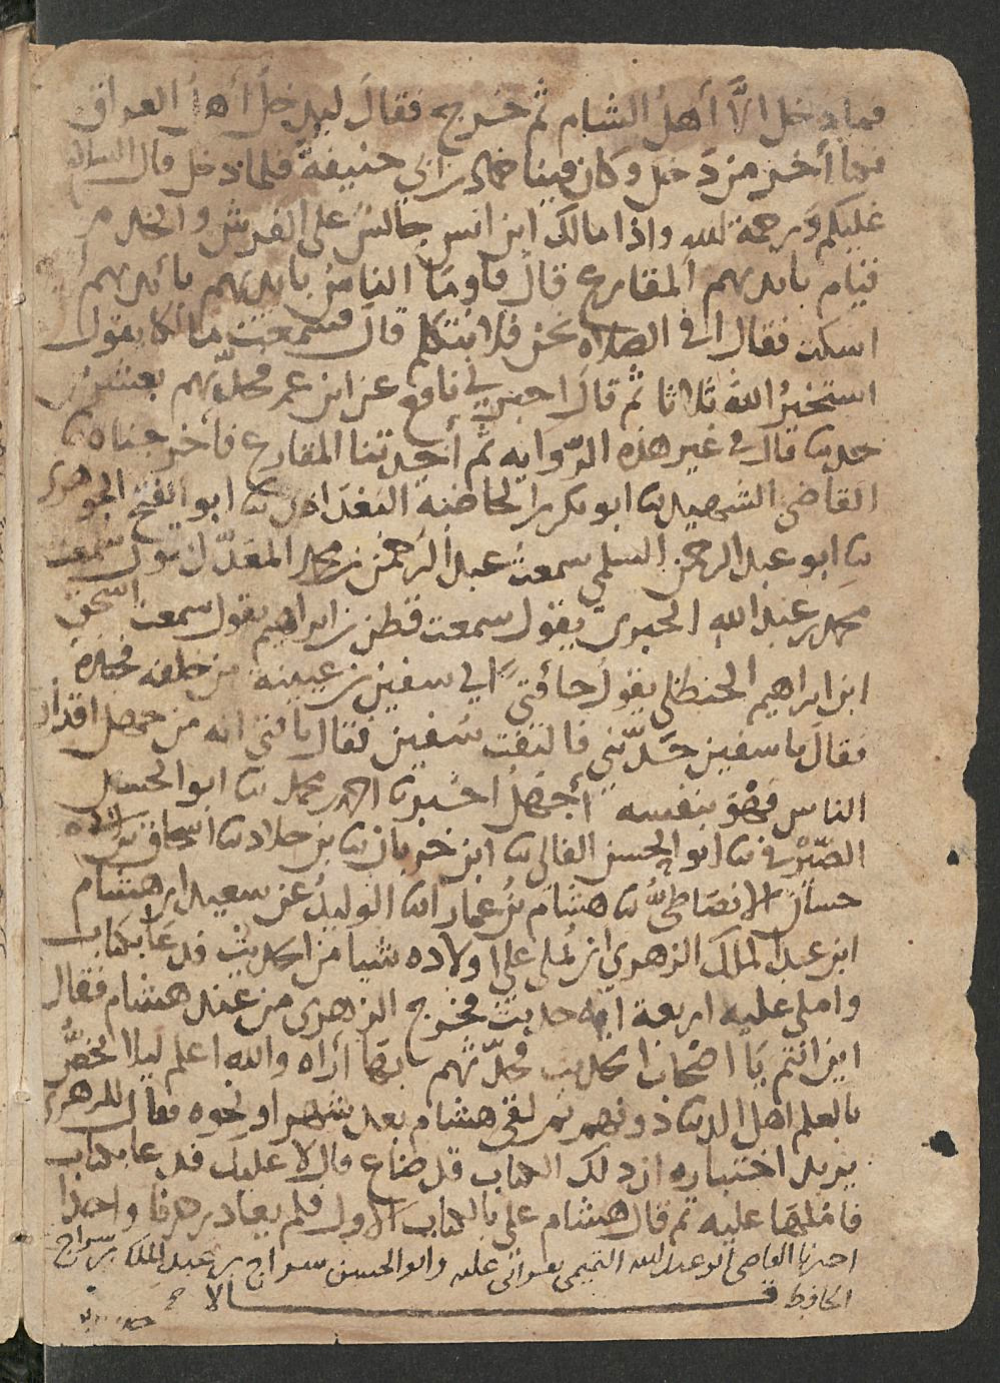 فما دخل الا أهل الشام ثم خرج فقال ليدخل أهل العراق
فكان آخر من دخل وكان فينا حماد بن ابي حنيفة فلما دخل قال السلام
عليكم ورحمة الله واذا مالك ابن انس جالس على الفرش والخدم
قيام بايديهم المقارع قال فاومأ الناس بايديهم
اسكت فقال افي الصلاة نحن فلا نتكلم قال فسمعت مالكا يقول
استخير الله ثلاثا ثم قال اخبرني نافع عن ابن عمر فحدثهم بعشرين
حديثا قال في غير هذه الرواية ثم أخذتنا المقارع فأخرجنا نا
القاضي الشهيد نا ابو بكر بن الخاضبة البغدادي نا ابو الفتح الجوهري
نا ابو عبد الرحمن السلمي سمعت عبد الرحمن بن محمد المعدل يقول سمعت
محمد بن عبد الله الحيري يقول سمعت قطن بن ابراهيم يقول سمعت اسحق
ابن ابراهيم الحنظلي يقول جاء فتى الى سفين بن عيينة من خلفه فجذبه
فقال يا سفين حدثني فالتفت سفين فقال يا فتى انه من جهل اقدار
الناس فهو بنفسه أجهل اخبرنا احمد بن محمد نا ابو الحسين
الصيرفي نا ابو الحسن الفالي نا ابن خربان نا بن خلاد نا اسحاق بن
حسان الانماطي نا هشام بن عمار نا الوليد عن سعيد ان هشام
ابن عبد الملك الزهري ان يملي على اولاده شيا من الحديث فدعا بكاتب
واملى عليه اربعة اية حديث فخرج الزهري من عند هشام فقال
اين انتم يا اصحاب الحديث فحدثهم بها أراه والله اعلم ليلا يخص
بالعلم اهل الدنيا دونهم ثم لقي هشام بعد شهر او نحوه فقال للزهري
يريد اختباره ان ذلك الكتاب قد ضاع قال لا عليك فدعا بكاتب
فاملها عليه ثم قال هشام علي بالكتاب الاول فلم يغادر حرفا واحدا
اخبرنا القاضي ابو عبد الله التميمي بقراتي عليه وابو الحسن سراج بن عبد الملك بن سراج
الحافظ قالا